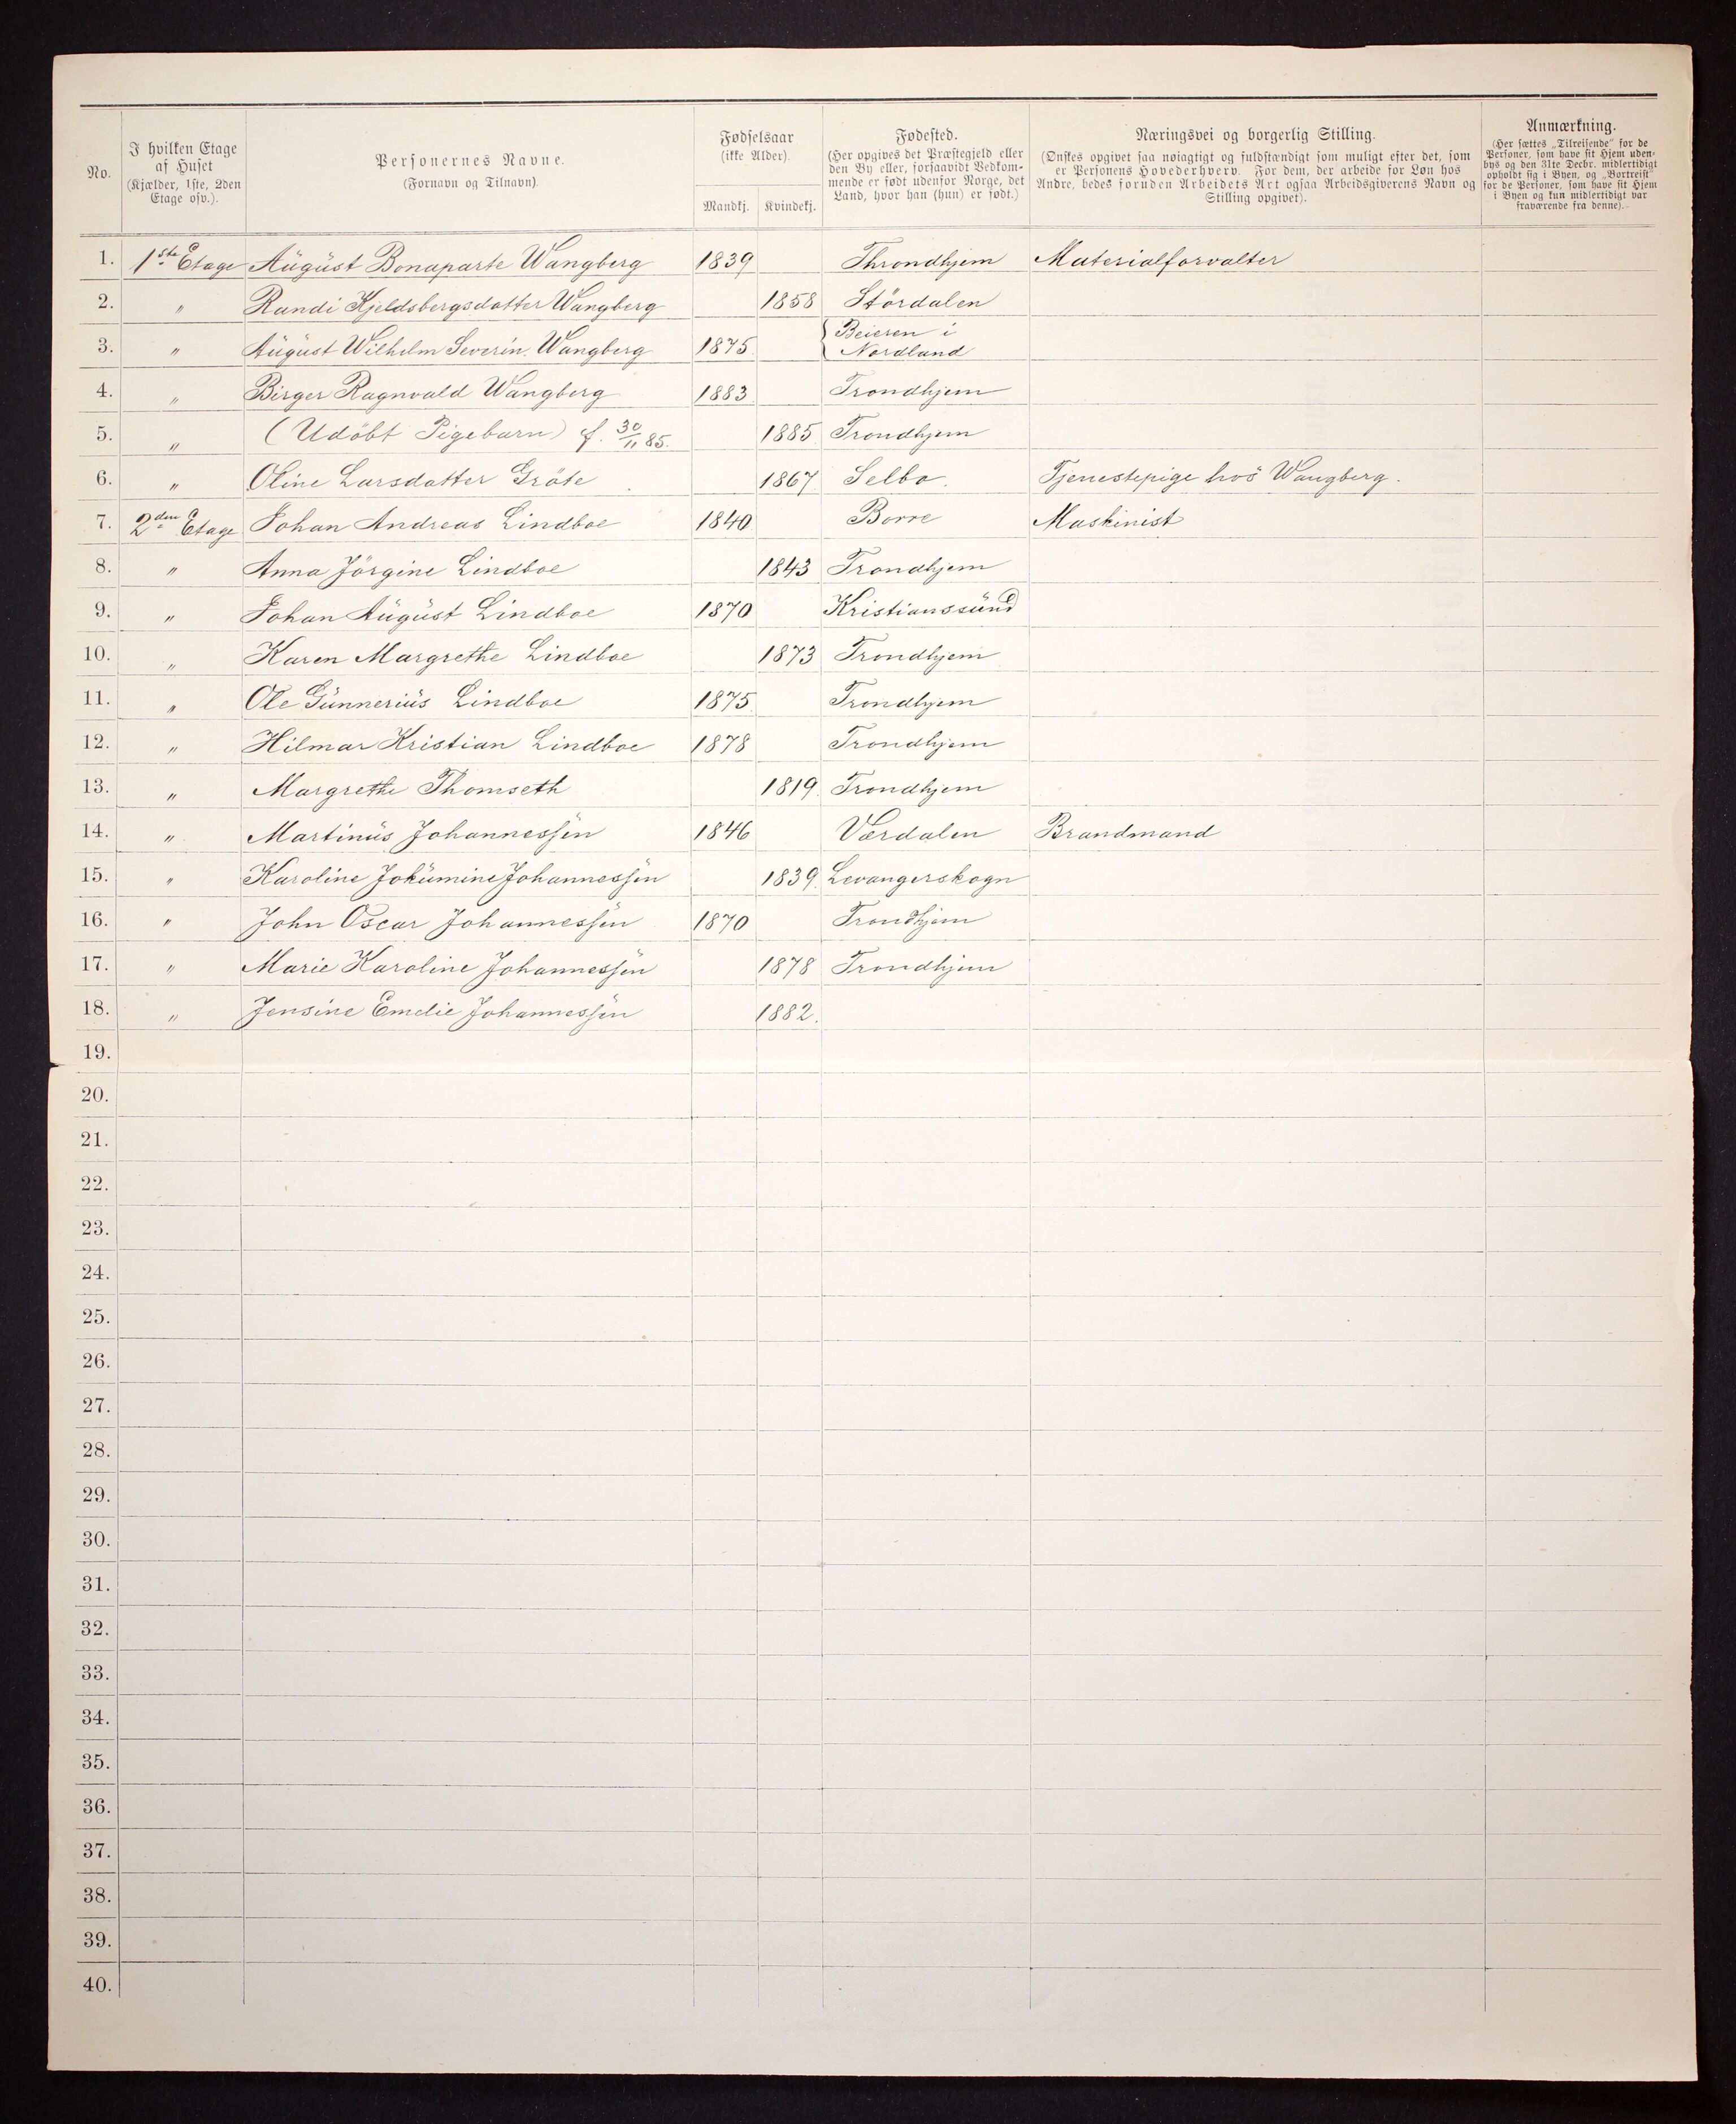 No.
I hvilken Etage
af Huset
(Kjælder, 1ste, 2den
Etage osv.).
Personernes Navne.
(Fornavn og Tilnavn).
Fødselsaar
(ikke Alder).
Mandkj. Kvindekj.
Fødested.
(Her opgives det Præstegjeld eller
den By eller, forsaavidt Vedkom-
mende er født udenfor Norge, det
Land, hvor han (hun) er født.)
Næringsvei og borgerlig Stilling.
(Ønskes opgivet saa nøiagtigt og fuldstændigt som muligt efter det, som
er Personens Hovederhverv. For dem, der arbeide for Løn hos
Andre, bedes foruden Arbeidets Art ogsaa Arbeidsgiverens Navn og
Stilling opgivet).
Anmærkning.
(Her sættes „Tilreisende" for de
Personer, som have sit Hjem uden-
bys og den 31te Decbr. midlertidigt
opholdt sig i Byen, og „Bortreist"
for de Personer, som have sit Hjem
i Byen og kun midlertidigt var
fraværende fra denne).
1. 1ste Etage August Bonaparte Wangberg 1839 Throndhjem Materialforvalter
2. " Randi Kjeldsbergsdatter Wangberg 1858 Stördalen
3. " August Wilhelm Severin Wangberg 1875 Beieren i
Nordland
4. " Birger Ragnvald Wangberg 1883 Trondhjem
5. " (Udöbt Pigebarn) f. 30/11 85. 1885 Trondhjem
6. " Oline Larsdatter Gröte 1867 Selbo. Tjenestepige hos Wangberg.
7. 2den Etage Johan Andreas Lindboe 1840 Borre Maskinist
8. " Anna Jörgine Lindboe 1843 Trondhjem
9. " Johan August Lindboe 1870 Kristianssund
10. " Karen Margrethe Lindboe 1873 Trondhjem
11. " Ole Gunnerius Lindboe 1875 Trondhjem
12. " Hilmar Kristian Lindboe 1878 Trondhjem
13. " Margrethe Thomseth 1819. Trondhjem
14. " Martinus Johannessen 1846 Værdalen Brandmand
15. " Karoline Jokumine Johannessen 1839. Levangerskogn
16. " John Oscar Johannessen 1870 Trondhjem
17. " Marie Karoline Johannessen 1878 Trondhjem
18. " Jensine Emelie Johannessen 1882.
19.
20.
21.
22.
23.
24.
25.
26.
27.
28.
29.
30.
31.
32.
33.
34.
35.
36.
37.
38.
39.
40.